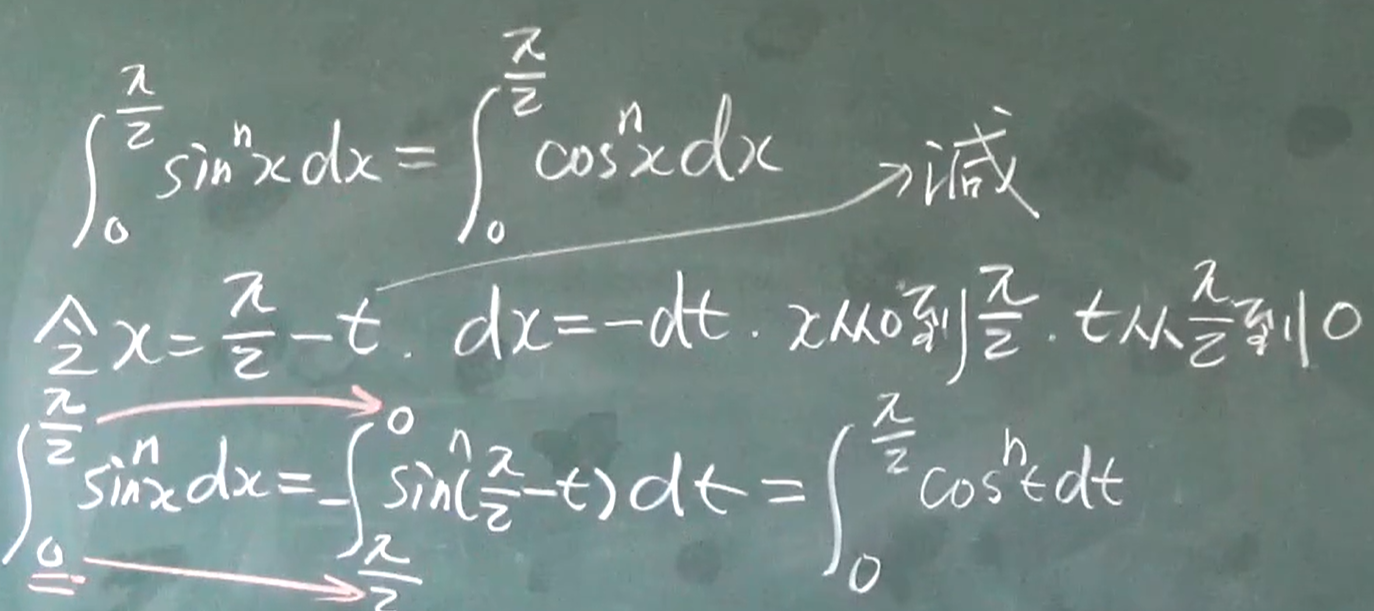 ∫₀^{π/2} sinⁿx dx = ∫₀^{π/2} cosⁿx dx → 减
令 x = π/2 − t. dx = −dt. x从0到π/2. t从π/2到0
∫₀^{π/2} sinⁿx dx = −∫_{π/2}^0 sinⁿ(π/2 − t) dt = ∫₀^{π/2} cosⁿt dt